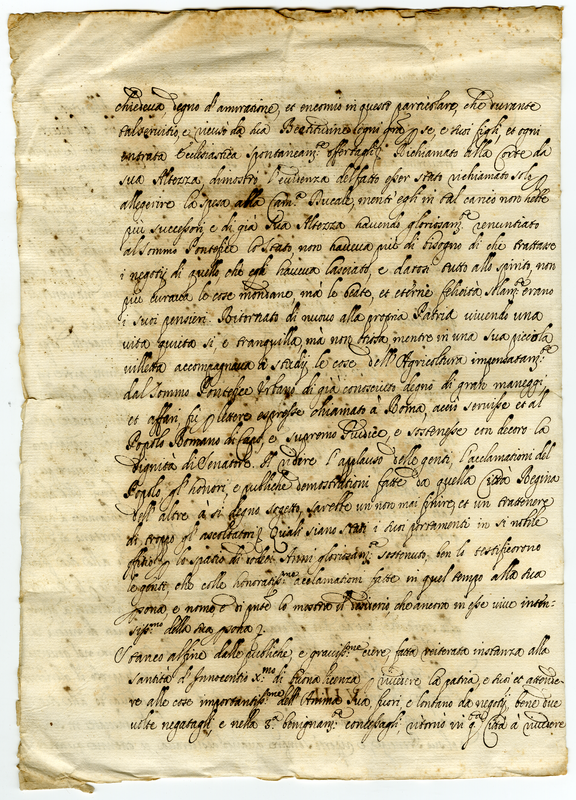 chiedeva degno d'amiratione, et encomio in questo particolare, che durante
tal servitio, e ricusò da Sua Beatitudine ogni pr̃a p se, e suoi figli, et ogni
entrata Ecclesiastica spontaneam.te offertagli. Richiamato alla Corte da
sua Altezza dimostrò l'evidenza del fatto esser stato richiamato solo
allegerire la spesa alla Cam.a Ducale, mentr'egli in tal carico non hebbe
più successori, e di già sua Altezza havendo gloriosam.te renuntiato
al Sommo Pontefice lo stato non haveva più di bisogno di che trattare
i negotij di quello, che egli haveva lasciato, e datosi tutto allo spirito, non
più curava le cose mondane, mà le beate, et eterne felicità solam.te erano
i suoi pensieri. Ritornato di nuovo alla propria Patria vivendo una
vita quieta si, e tranquilla, mà non tiossa, mentre in una sua piccola
villetta accompagnava à studij le cose dell'Agricoltura impensatam.te
dal Sommo Pontefice Urbano di già conosciuto degno di gran maneggi,
et affari, fù p lettere espresse chiamato à Roma, acciò servisse et al
Popolo Romano di Capo, e supremo Giudice, e sostenesse con decoro la
dignità di Senatore. Il ridire l'applauso delle genti, l'acclamationi del
Popolo, gl'honori, e publiche demostrationi fatte da quella Città Regina
dell'altre a si degno sogetto, sarebbe un non mai finire, et un trattenere
di tropo gl'ascoltatori. Quali siano stati i suoi portamenti in si nobile
offitio p lo spatio di Anni gloriosam.te sostenuto, ben lo testificorno
le genti, che colle honoratis.me acclamationi fatte in quel tempo alla sua
psona, e nome e di pnte lo mostra il desiderio che ancora in esse vive inten-
siss.mo della sua psona.
Stanco alfine dalle publiche, e graviss.me cure, fatta reiterata instanza alla
Santità d'Innocentio X.mo di buona licenza p rivedere la patria, e suoi et attende-
re alle cose importantis.me dell'Anima sua, fuori, e lontano da negotij, bene due
volte negatagli, e nella 3.a benignam.te concessagli, ritornò in q.ta Città à rivedere